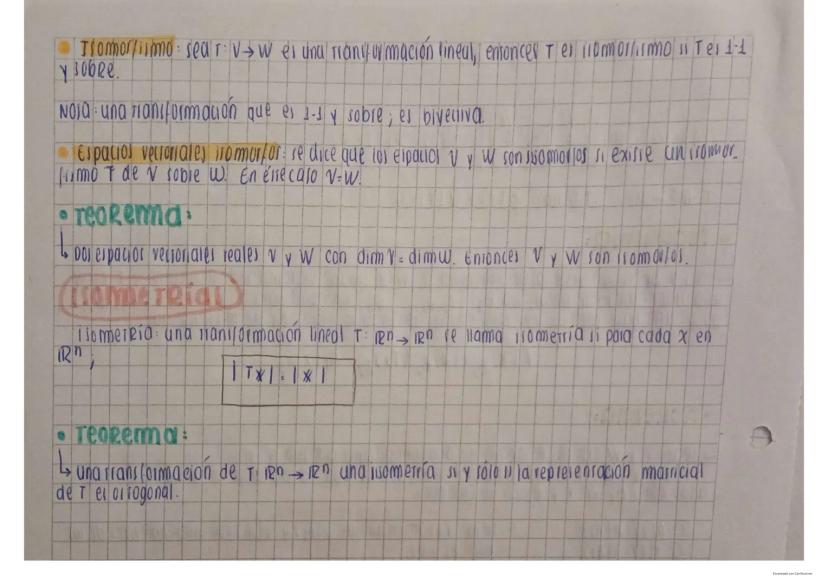 • Isomorfismo: sea T: V→W es una transformación lineal, entonces T es isomorfismo si T es 1-1
y sobre.
Nota: una transformación que es 1-1 y sobre, es biyectiva.
• Espacios vectoriales isomorfos: se dice que los espacios V y W son isomorfos si existe un isomor_
fismo T de V sobre W. En ese caso V=W.
• Teorema:
↳ Dos espacios vectoriales reales V y W con dim V = dim W. Entonces V y W son isomorfos.
Isometrías
Isometría: una transformación lineal T: ℝⁿ→ℝⁿ se llama isometría si para cada x en
ℝⁿ;
|Tx| = |x|
• Teorema:
↳ una transformación de T: ℝⁿ→ℝⁿ una isometría si y sólo si la representación matricial
de T es ortogonal.